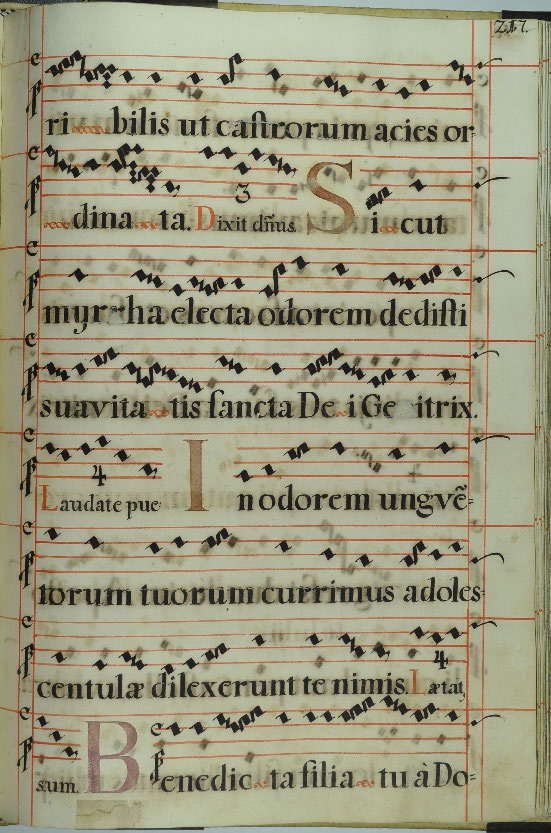 217.
ri bilis ut castrorum acies or
dina ta. Dixit dñus. 3 Si cut
myrrha electa odorem dedisti
suavita tis sancta De i Ge itrix.
Laudate pue 4 In odorem ungvẽ=
torum tuorum currimus adoles-
centulæ dilexerunt te nimis. Lætat, 4
sum. Benedic ta filia tu à Do=